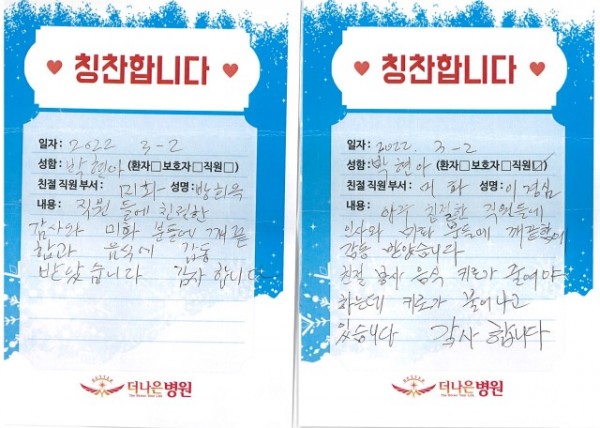 칭찬합니다
일자: 2022 3-2
성함: 박현아 (환자□ 보호자□ 직원□)
친절 직원 부서: 미화 성명: 방희옥
내용: 직원 들에 친절한
감사와 미화 분들에 깨끗
함과 음식에 감동
받았습니다 감사합니다
더나은병원
칭찬합니다
일자: 2022. 3-2
성함: 박현아 (환자□ 보호자□ 직원☑)
친절 직원 부서: 미화 성명: 이경심
내용: 아주 친절한 직원들에
인사와 미화 분들에 깨끗함에
감동 받았습니다
친절 봉사 음식 키로가 줄어야
하는데 키로가 불어나고
있습니다 감사합니다
더나은병원